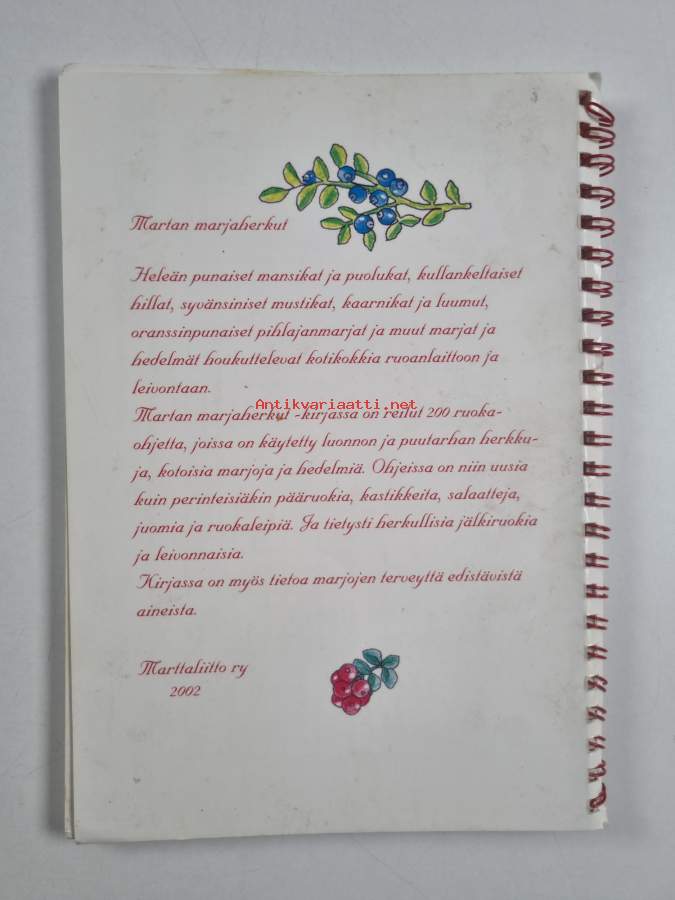 Martan marjaherkut
Heleän punaiset mansikat ja puolukat, kullankeltaiset
hillat, syvänsiniset mustikat, kaarnikat ja luumut,
oranssinpunaiset pihlajanmarjat ja muut marjat ja
hedelmät houkuttelevat kotikokkia ruoanlaittoon ja
leivontaan.
Antikvariaatti.net
Martan marjaherkut -kirjassa on reilut 200 ruoka-
ohjetta, joissa on käytetty luonnon ja puutarhan herkku-
ja, kotoisia marjoja ja hedelmiä. Ohjeissa on niin uusia
kuin perinteisiäkin pääruokia, kastikkeita, salaatteja,
juomia ja ruokaleipiä. Ja tietysti herkullisia jälkiruokia
ja leivonnaisia.
Kirjassa on myös tietoa marjojen terveyttä edistävistä
aineista.
Marttaliitto ry
2002